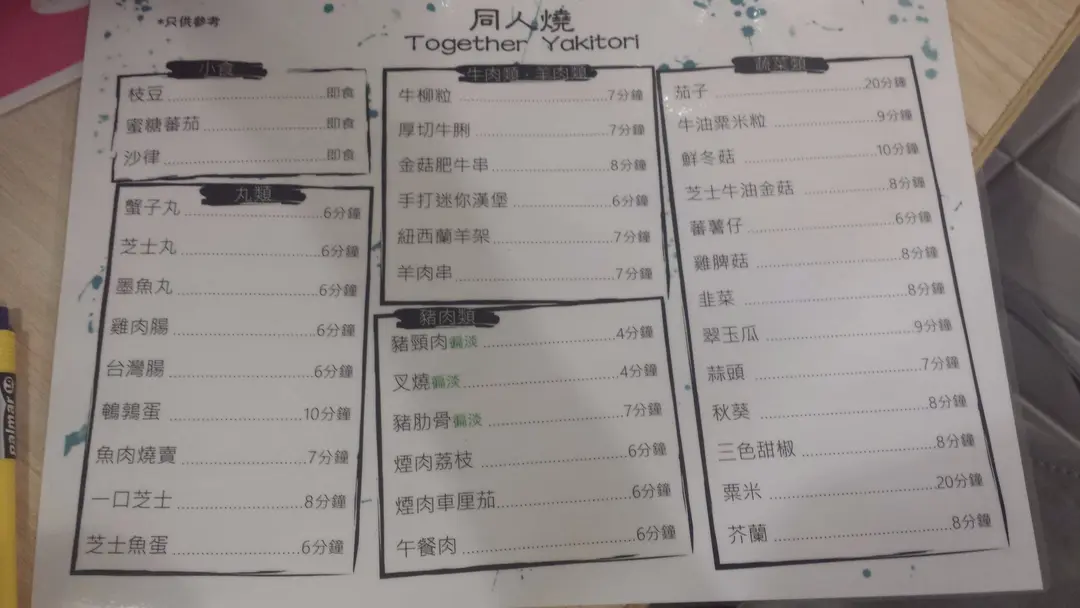 *只供參考
同人燒
Together Yakitori
小食
枝豆 即食
蜜糖蕃茄 即食
沙律 即食
丸類
蟹子丸 6分鐘
芝士丸 6分鐘
墨魚丸 6分鐘
雞肉腸 6分鐘
台灣腸 6分鐘
鵪鶉蛋 10分鐘
魚肉燒賣 7分鐘
一口芝士 8分鐘
芝士魚蛋 6分鐘
牛肉類·羊肉類
牛柳粒 7分鐘
厚切牛脷 7分鐘
金菇肥牛串 8分鐘
手打迷你漢堡 6分鐘
紐西蘭羊架 7分鐘
羊肉串 7分鐘
豬肉類
豬頸肉偏淡 4分鐘
叉燒偏淡 4分鐘
豬肋骨偏淡 7分鐘
煙肉荔枝 6分鐘
煙肉車厘茄 6分鐘
午餐肉 6分鐘
蔬菜類
茄子 20分鐘
牛油粟米粒 9分鐘
鮮冬菇 10分鐘
芝士牛油金菇 8分鐘
蕃薯仔 6分鐘
雞脾菇 8分鐘
韭菜 8分鐘
翠玉瓜 9分鐘
蒜頭 7分鐘
秋葵 8分鐘
三色甜椒 8分鐘
粟米 20分鐘
芥蘭 8分鐘
palmar